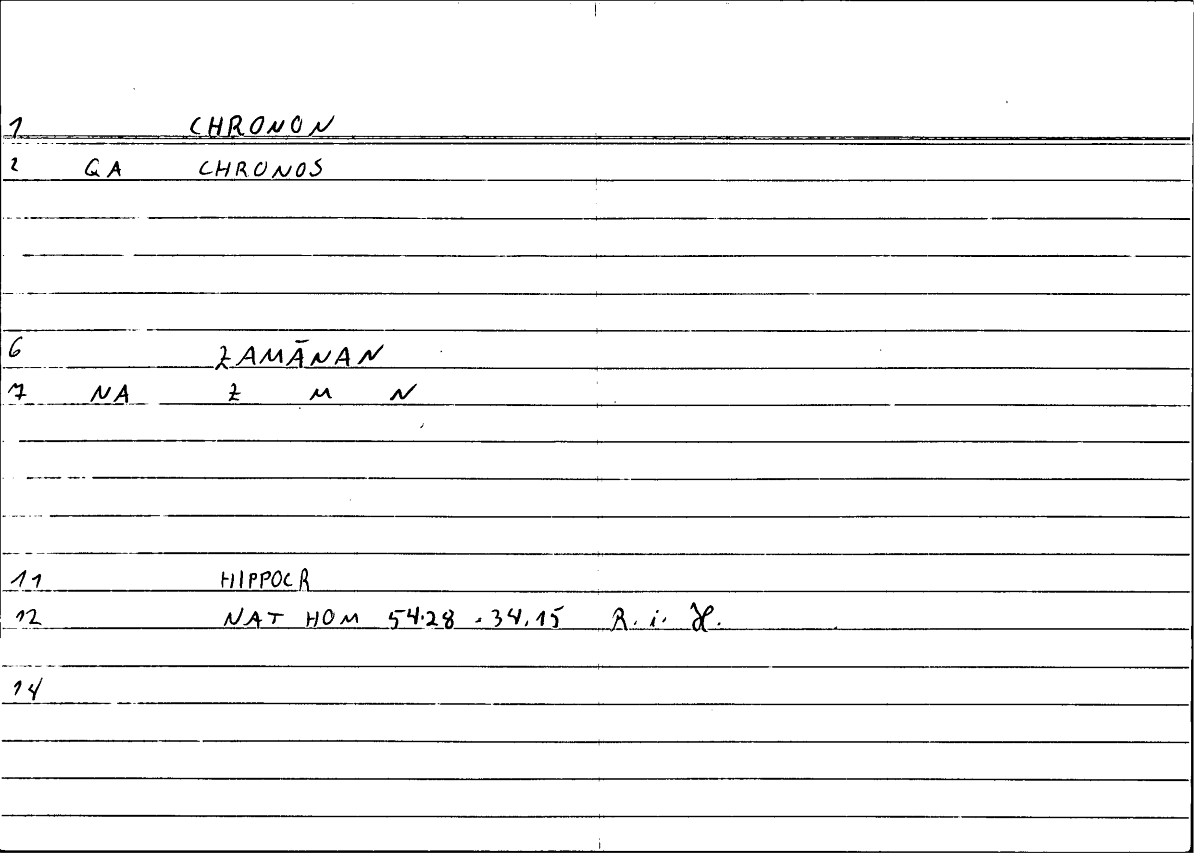 1 CHRONON
2 GA CHRONOS
6 ZAMĀNAN
7 NA Z M N
11 HIPPOCR
12 NAT HOM 54.28 . 34.15 R. i. H.
14